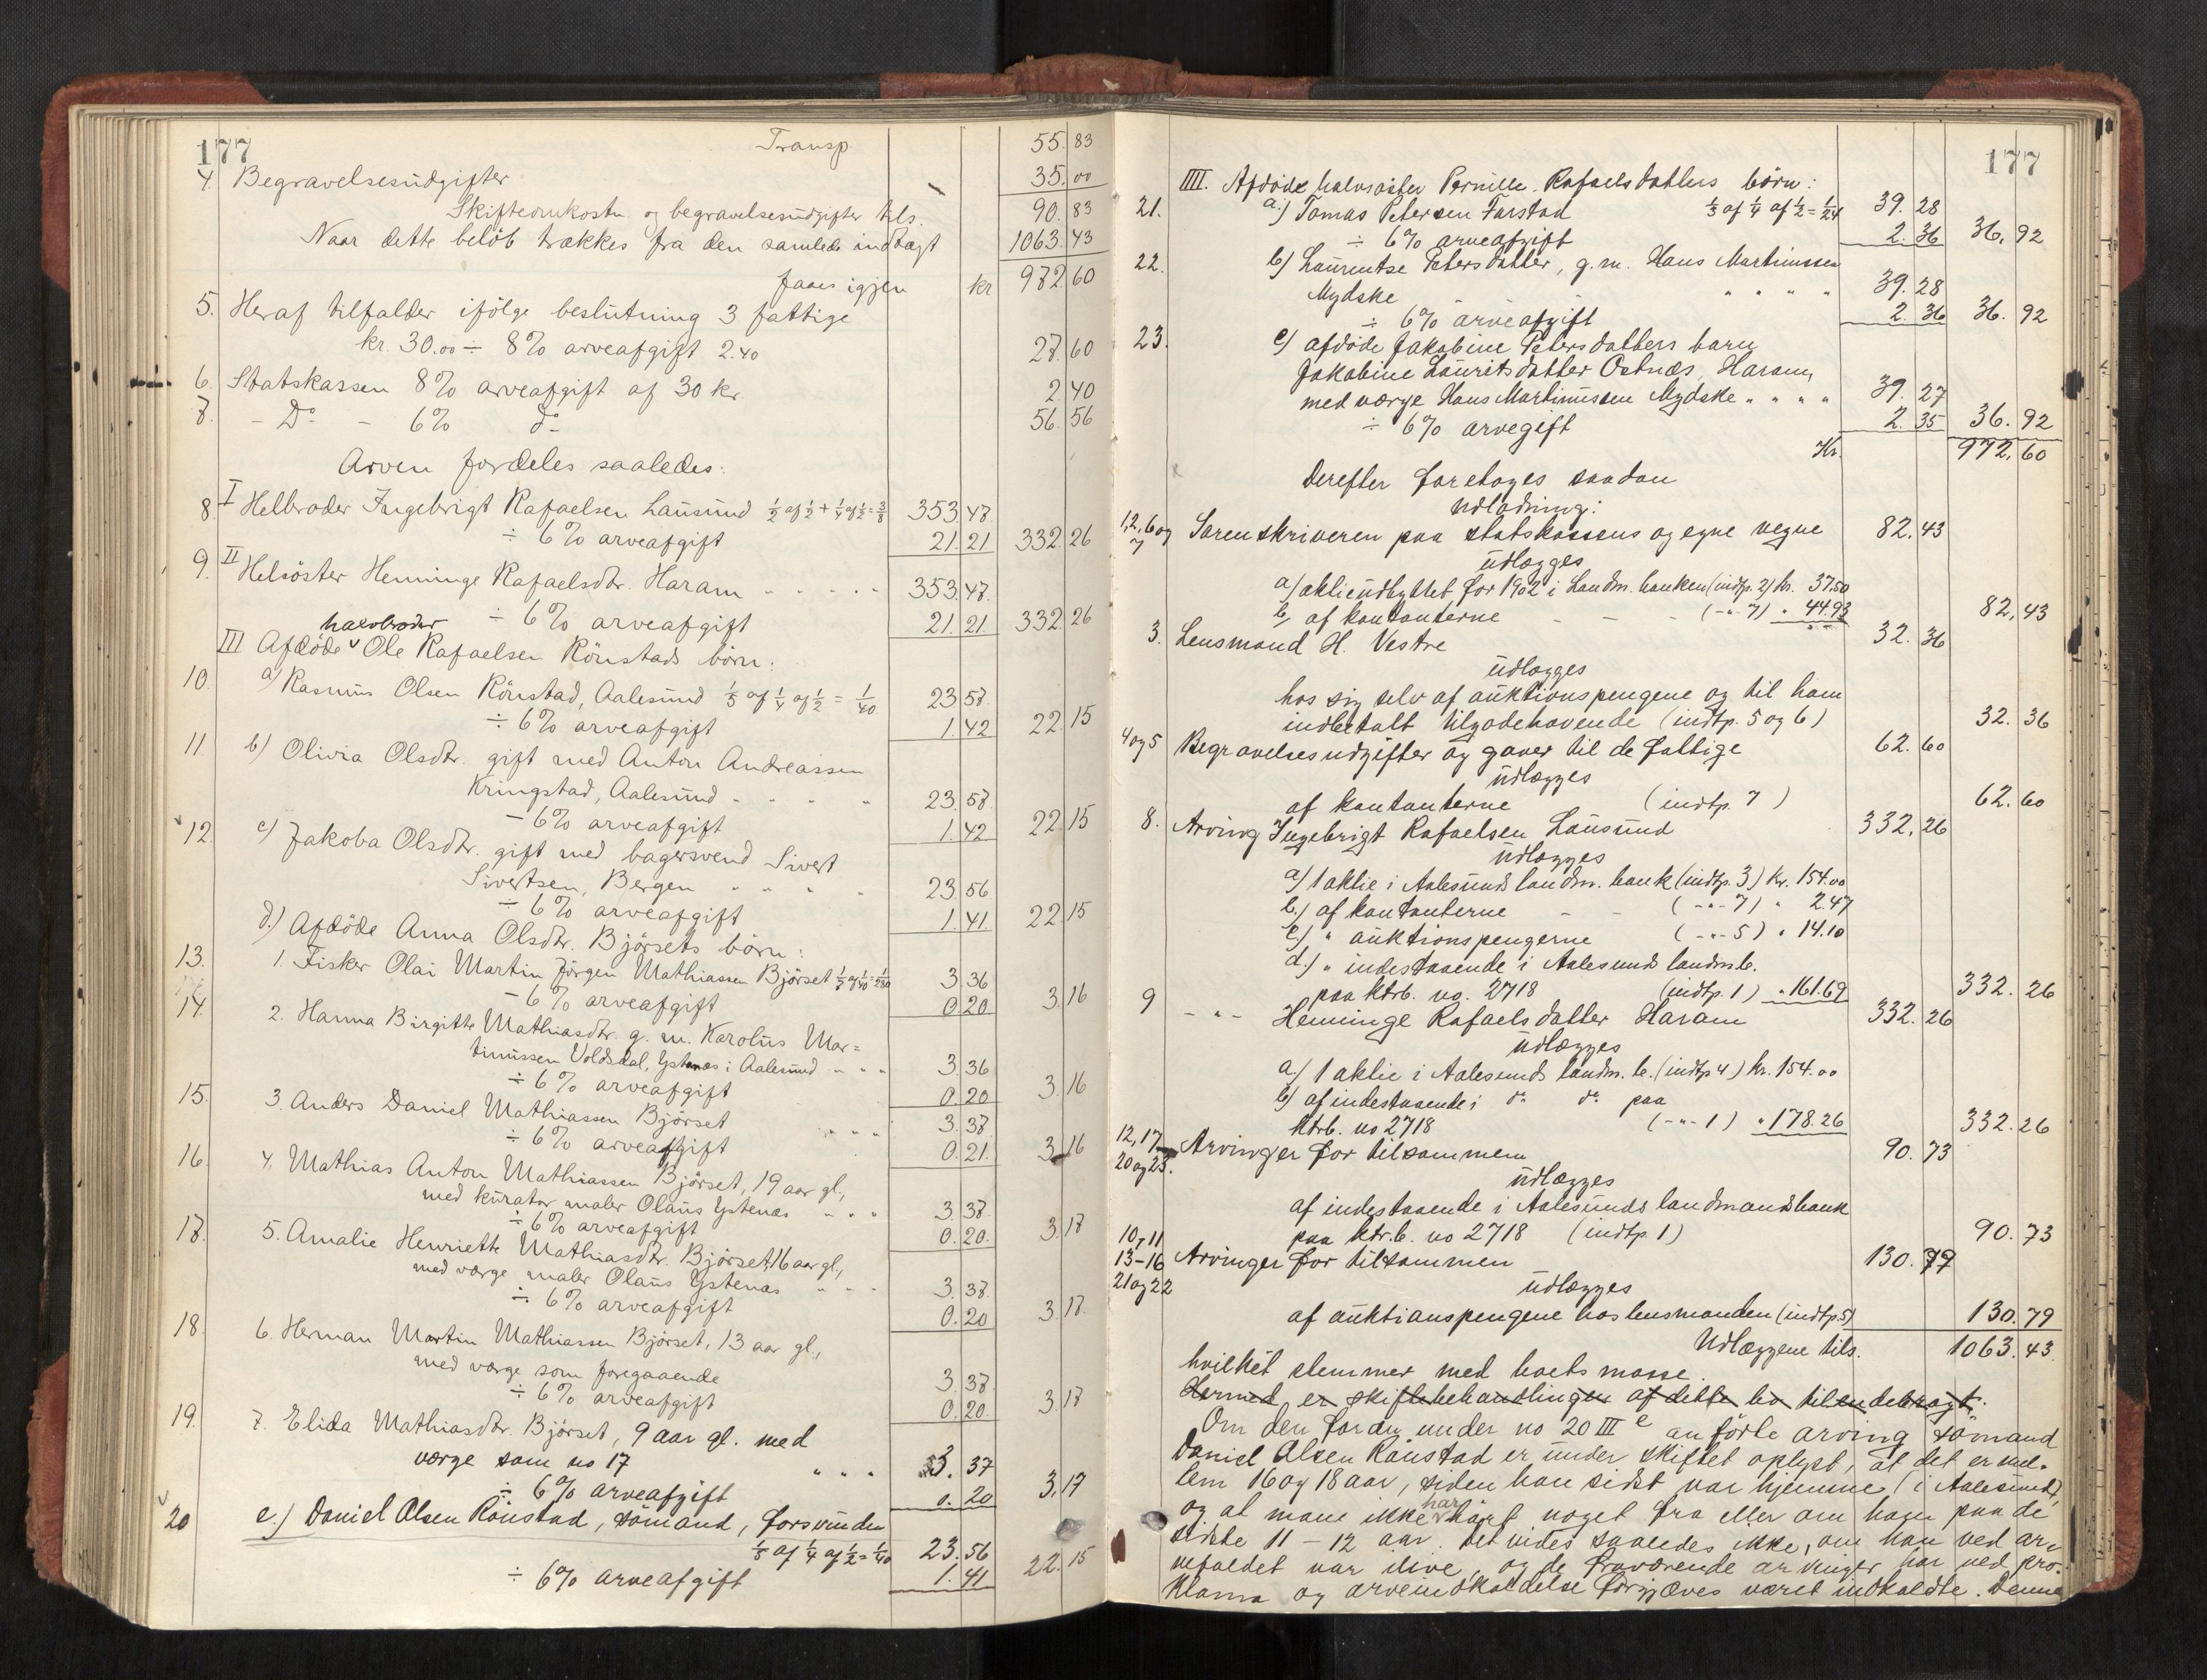 177
Transp 55.83
4. Begravelsesudgifter 35.00
Skifteomkostn. og begravelsesudgifter tils. 90.83
Naar dette beløb trækkes fra den samlede indtægt 1063.43
faaes igjen kr 972 60
5. Heraf tilfalder ifölge beslutning 3 fattige
kr. 30.00 ÷ 8% arveafgift 2.40 27.60
6. Statskassen 8% arveafgift af 30 kr. 2.40
7. - Do - 6% do 56.56
Arven fordeles saaledes:
8 I Helbroder Ingebrigt Rafaelsen Lausund ½ af ½ + ¼ af ½ = 3/8 353.47
÷ 6% arveafgift 21.21 332.26
9. II Helsöster Henninge Rafaelsdtr. Haram - - - - - 353.47
÷ 6% arveafgift 21.21 332.26
halvbroder
III Afdöde ᵛ Ole Rafaelsen Rönstads börn:
10. a) Rasmus Olsen Rönstad, Aalesund 1/5 af ¼ af ½ = 1/40 23.57
÷ 6% arveafgift 1.42 22.15
11 b) Olivia Olsdtr. gift med Anton Andreassen
Kringstad, Aalesund - " " " 23.57
- 6% arveafgift 1.42 22.15
12. c) Jakoba Olsdtr. gift med bagersvend Sivert
Sivertsen, Bergen " " " " 23.56
÷ 6% arveafgift 1.41 22.15
d.) Afdöde Anna Olsdtr. Björsets börn:
13. 1. Fisker Olai Martin Jörgen Mathiassen Björset 1/7 af 1/40 = 1/280 3.36
- 6% arveafgift 0.20 3.16
14. 2. Hanna Birgitte Mathiasdtr. g. m. Karolus Mar=
tinussen Voldsdal, Ystenæs i Aalesund - " " 3.36
÷ 6% arveafgift 0.20 3.16
15. 3. Anders Daniel Mathiassen Björset " " " 3.37
÷ 6% arveafgift 0.21 3.16
16. 4. Mathias Anton Mathiassen Björset, 19 aar gl.,
med kurator maler Olaus Ystenæs " " " 3.37
÷ 6% arveafgift 0.20. 3.17
17. 5. Amalie Henriette Mathiasdtr. Björset 16 aar gl.,
med værge maler Olaus Ystenæs " " " 3.37
÷ 6% arveafgift 0.20 3.17
18. 6. Herman Martin Mathiassen Björset, 13 aar gl.,
med værge som foregaaende 3.37
÷ 6% arveafgift 0.20. 3.17
19. 7. Elida Mathiasdtr. Björset, 9 aar gl. med
værge som no 17 " " " 3.37
÷ 6% arveafgift 0.20 3.17
20 e.) Daniel Olsen Rönstad, sömand, forsvunden
1/5 af ¼ af ½ = 1/40 23.56
÷ 6% arveafgift 1.41 22.15
177
IIII. Afdöde halvsöster Pernille Rafaelsdatters börn:
21. a.) Tomas Petersen Farstad 1/3 af ¼ af ½ = 1/24 39.28
÷ 6% arveafgift 2.36 36.92
22. b) Laurentse Petersdatter, g. m. Hans Martinussen
Mydske " " " " 39.28
÷ 6% arveafgift 2.36 36.92
23. c) afdöde Jakobine Petersdatters barn
Jakobine Lauritsdatter Ostnæs, Haram,
med værge Hans Martinussen Mydske " " " " 39.27
÷ 6% arvegift 2.35 36.92
Kr. 972.60
Derefter foretages saadan
Udlodning:
1, 2, 6 og 7 Sorenskriveren paa statskassens og egne vegne 82.43
udlægges
a) aktieudbyttet for 1902 i Landm. banken (indtp. 2) kr. 37.50
b) af kontanterne - - - (-"- 7) " 44.93 82.43
3. Lensmand H. Vestre 32.36
udlægges
hos sig selv af auktionspengene og til ham
indbetalt tilgodehavende (indtp. 5 og 6) 32.36
4 og 5 Begravelsesudgifter og gaver til de fattige 62.60
udlægges
af kontanterne (indtp. 7) 62.60
8. Arving Ingebrigt Rafaelsen Lausund 332.26
udlægges
a) 1 aktie i Aalesunds landm. bank (indtp. 3) kr. 154.00
b.) af kontanterne - - (-"- 7) " 2.47
c.) " auktionspengerne (-"- 5) " 14.10
d.) " indestaaende i Aalesunds landmb.
paa ktrb. no. 2718 (indtp. 1) " 161.69 332.26
9 -"- Henninge Rafaelsdatter Haram 332.26
udlægges
a.) 1 aktie i Aalesunds landm. b. (indtp 4) kr. 154.00
b) af indestaaende i do do paa
ktrb. no 2718 (-"- 1) " 178.26 332.26
12, 17- 20 og 23. Arvinger for tilsammen 90.73
udlægges
af indestaaende i Aalesunds landmandsbank
paa ktr.b. no 2718 (indtp. 1) 90.73
10, 11 13-16 21 og 22 Arvinger for tilsammen 130.79
udlægges
af auktionspengene hos lensmanden (indtp. 5) 130.79
Udlæggene tils. 1063.43
hvilket stemmer med boets masse.
Hermed er skiftebehandlingen af dette bo tilendebragt.
Om den foran under no 20 III e anförte arving sömand
Daniel Olsen Rönstad er under skiftet oplyst, at det er mel-
lem 16 og 18 aar, siden han sidst var hjemme (i Aalesund),
og at man ikke har hört noget fra eller om ham paa de
sidste 11 - 12 aar. Det vides saaledes ikke, om han ved ar-
vefaldet var ilive, og de fraværende arvinger har ved pro-
klama og arveindkaldelse forgjæves været indkaldte. Denne